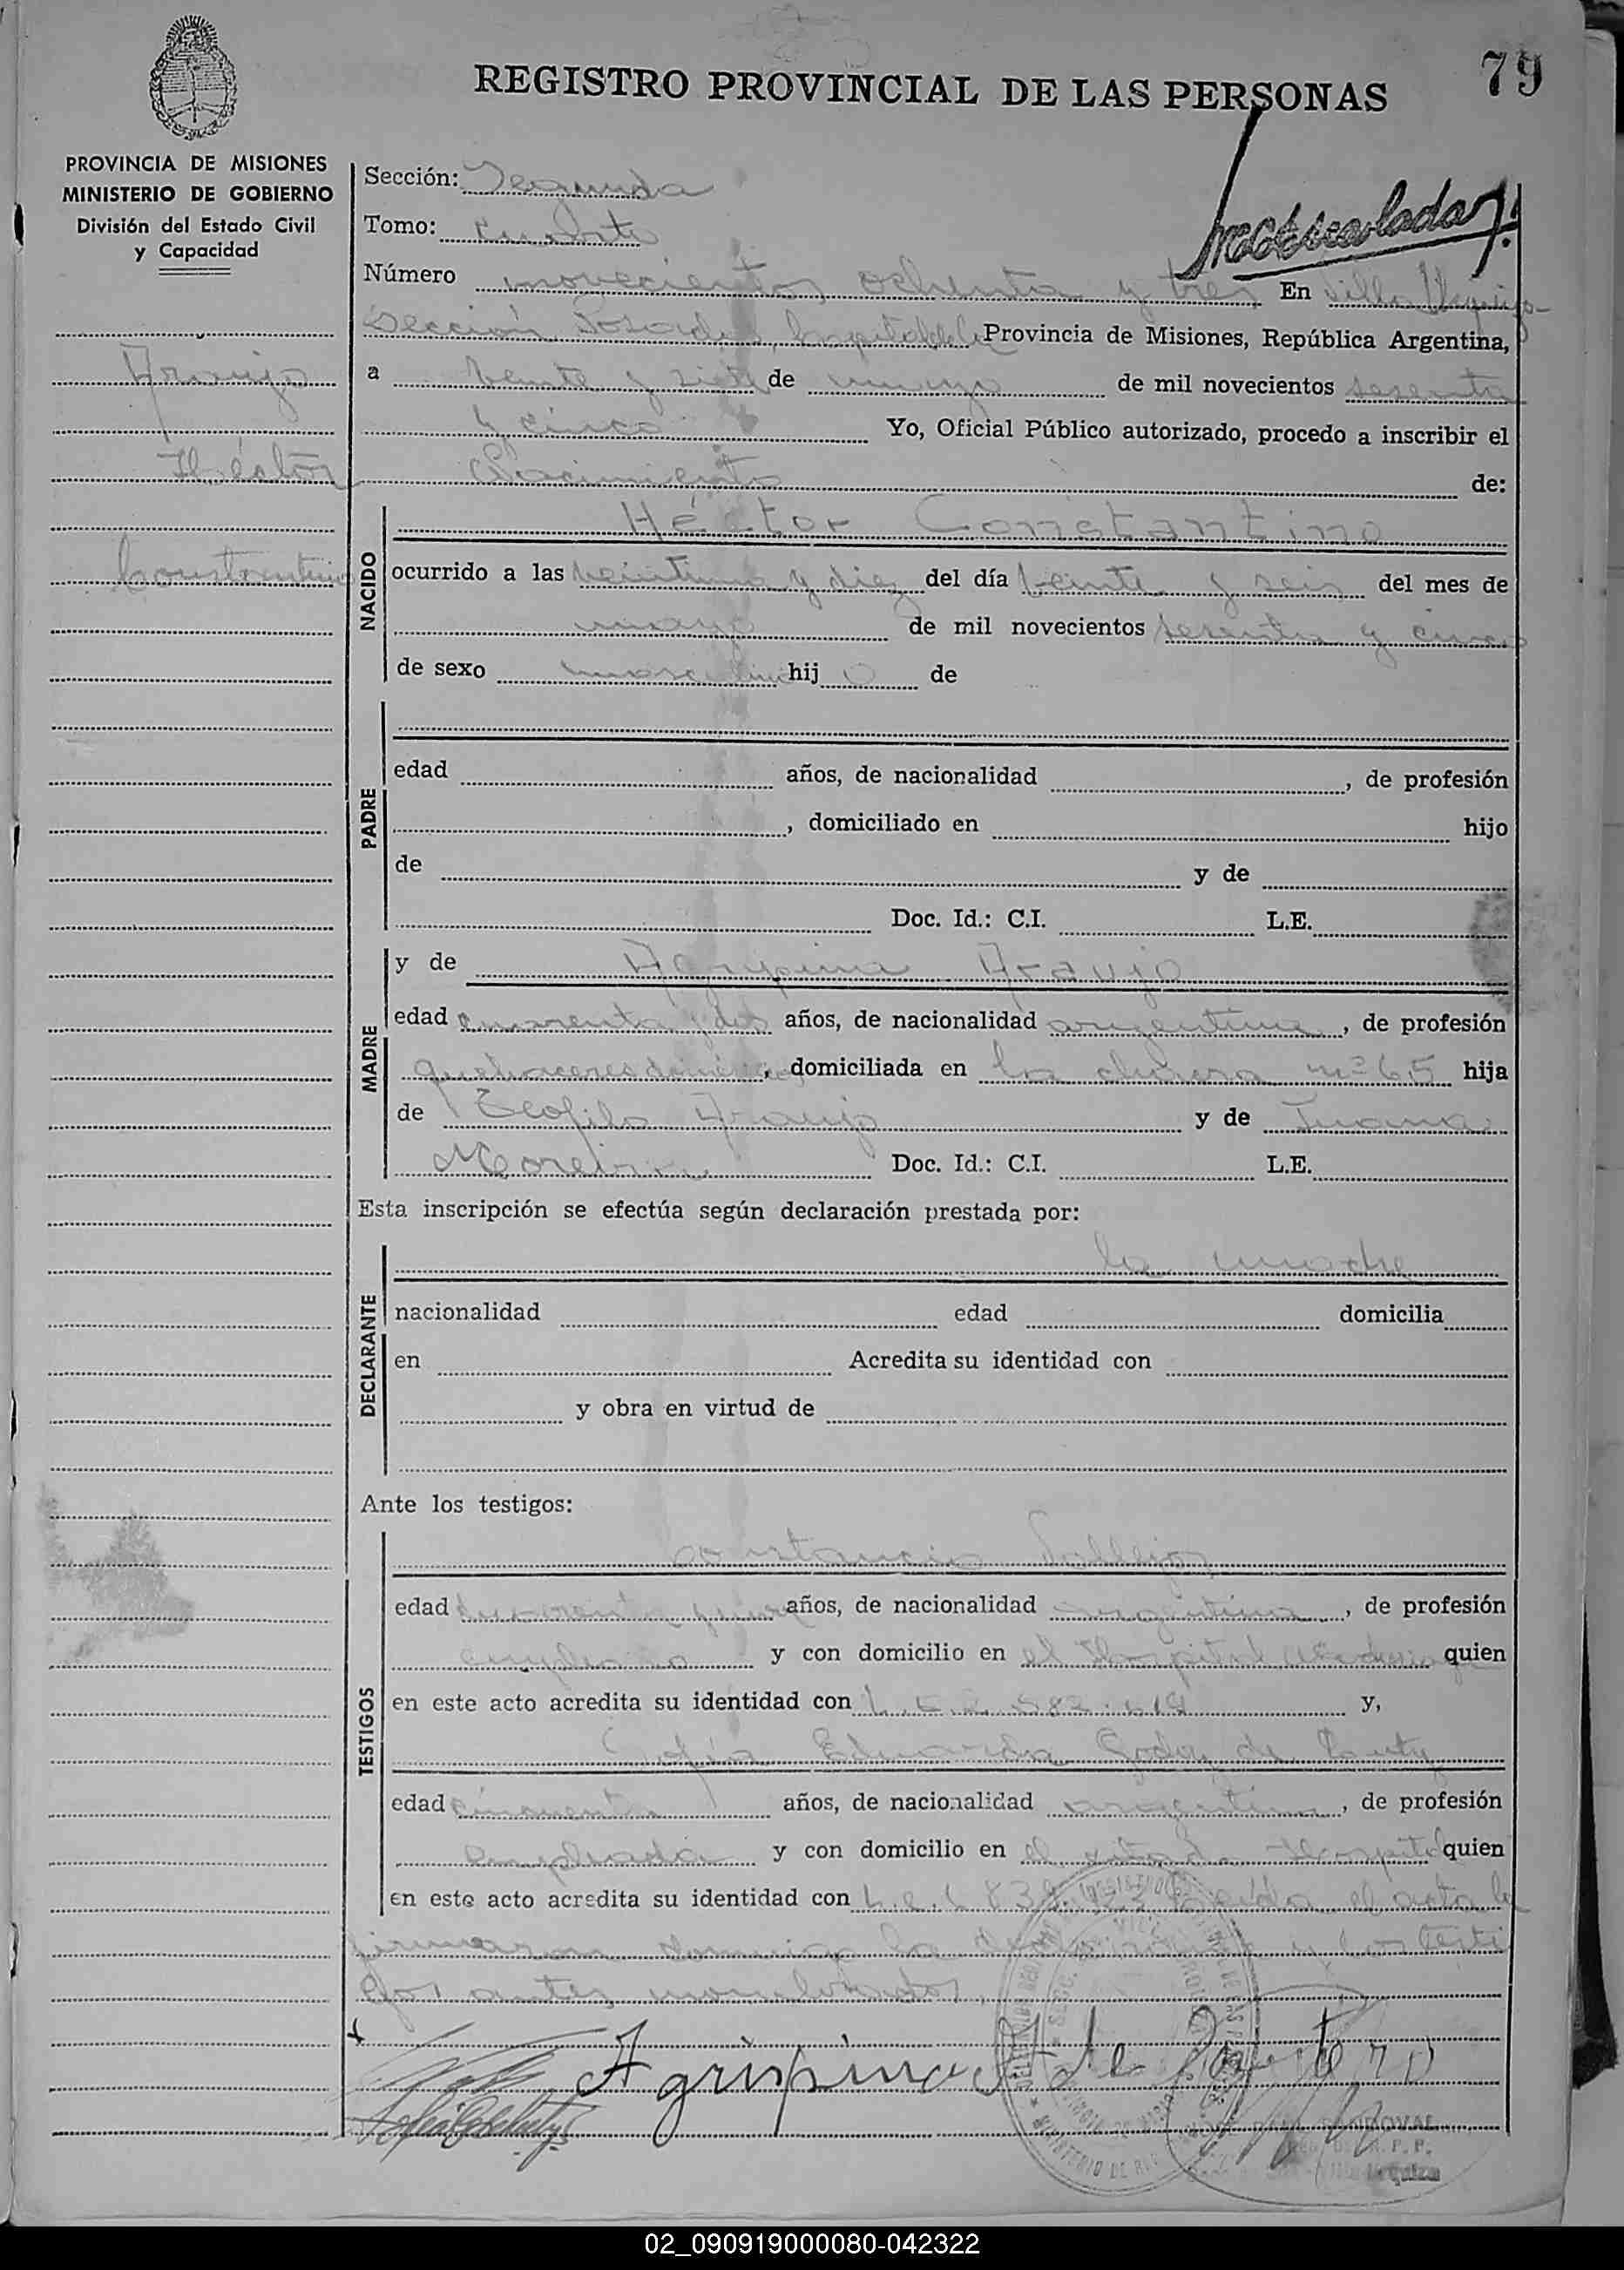 REGISTRO PROVINCIAL DE LAS PERSONAS
79
PROVINCIA DE MISIONES
MINISTERIO DE GOBIERNO
División del Estado Civil
y Capacidad
Araujo
Héctor
Constantino
Sección: Segunda
Tomo: cuarto
Número novecientos ochenta y tres En Villa Urquiza
Sección Posadas, Capital de la Provincia de Misiones, República Argentina,
a veinte y siete de mayo de mil novecientos sesenta
y cinco Yo, Oficial Público autorizado, procedo a inscribir el
Nacimiento de:
NACIDO
Héctor Constantino
ocurrido a las veintiuna y diez del día veinte y seis del mes de
mayo de mil novecientos sesenta y cinco
de sexo masculino hijo de
PADRE
edad años, de nacionalidad , de profesión
, domiciliado en hijo
de y de
Doc. Id.: C.I. L.E.
MADRE
y de Agripina Araujo
edad cuarenta y dos años, de nacionalidad argentina, de profesión
quehaceres domésticos, domiciliada en la chacra nº 65 hija
de Teofilo Araujo y de Juana
Moreira Doc. Id.: C.I. L.E.
Esta inscripción se efectúa según declaración prestada por:
DECLARANTE
la madre
nacionalidad edad domicilia
en Acredita su identidad con
y obra en virtud de
Ante los testigos:
TESTIGOS
Vallejos
edad años, de nacionalidad argentina, de profesión
y con domicilio en el Hospital quien
en este acto acredita su identidad con y,
Sofia Eduarda Godoy de
edad cincuenta años, de nacionalidad argentina, de profesión
empleada y con domicilio en el citado Hospital quien
en este acto acredita su identidad con Leída el acta la
firmaron conmigo la declarante y los testi
gos antes nombrados.
Agripina A de
02_090919000080-042322